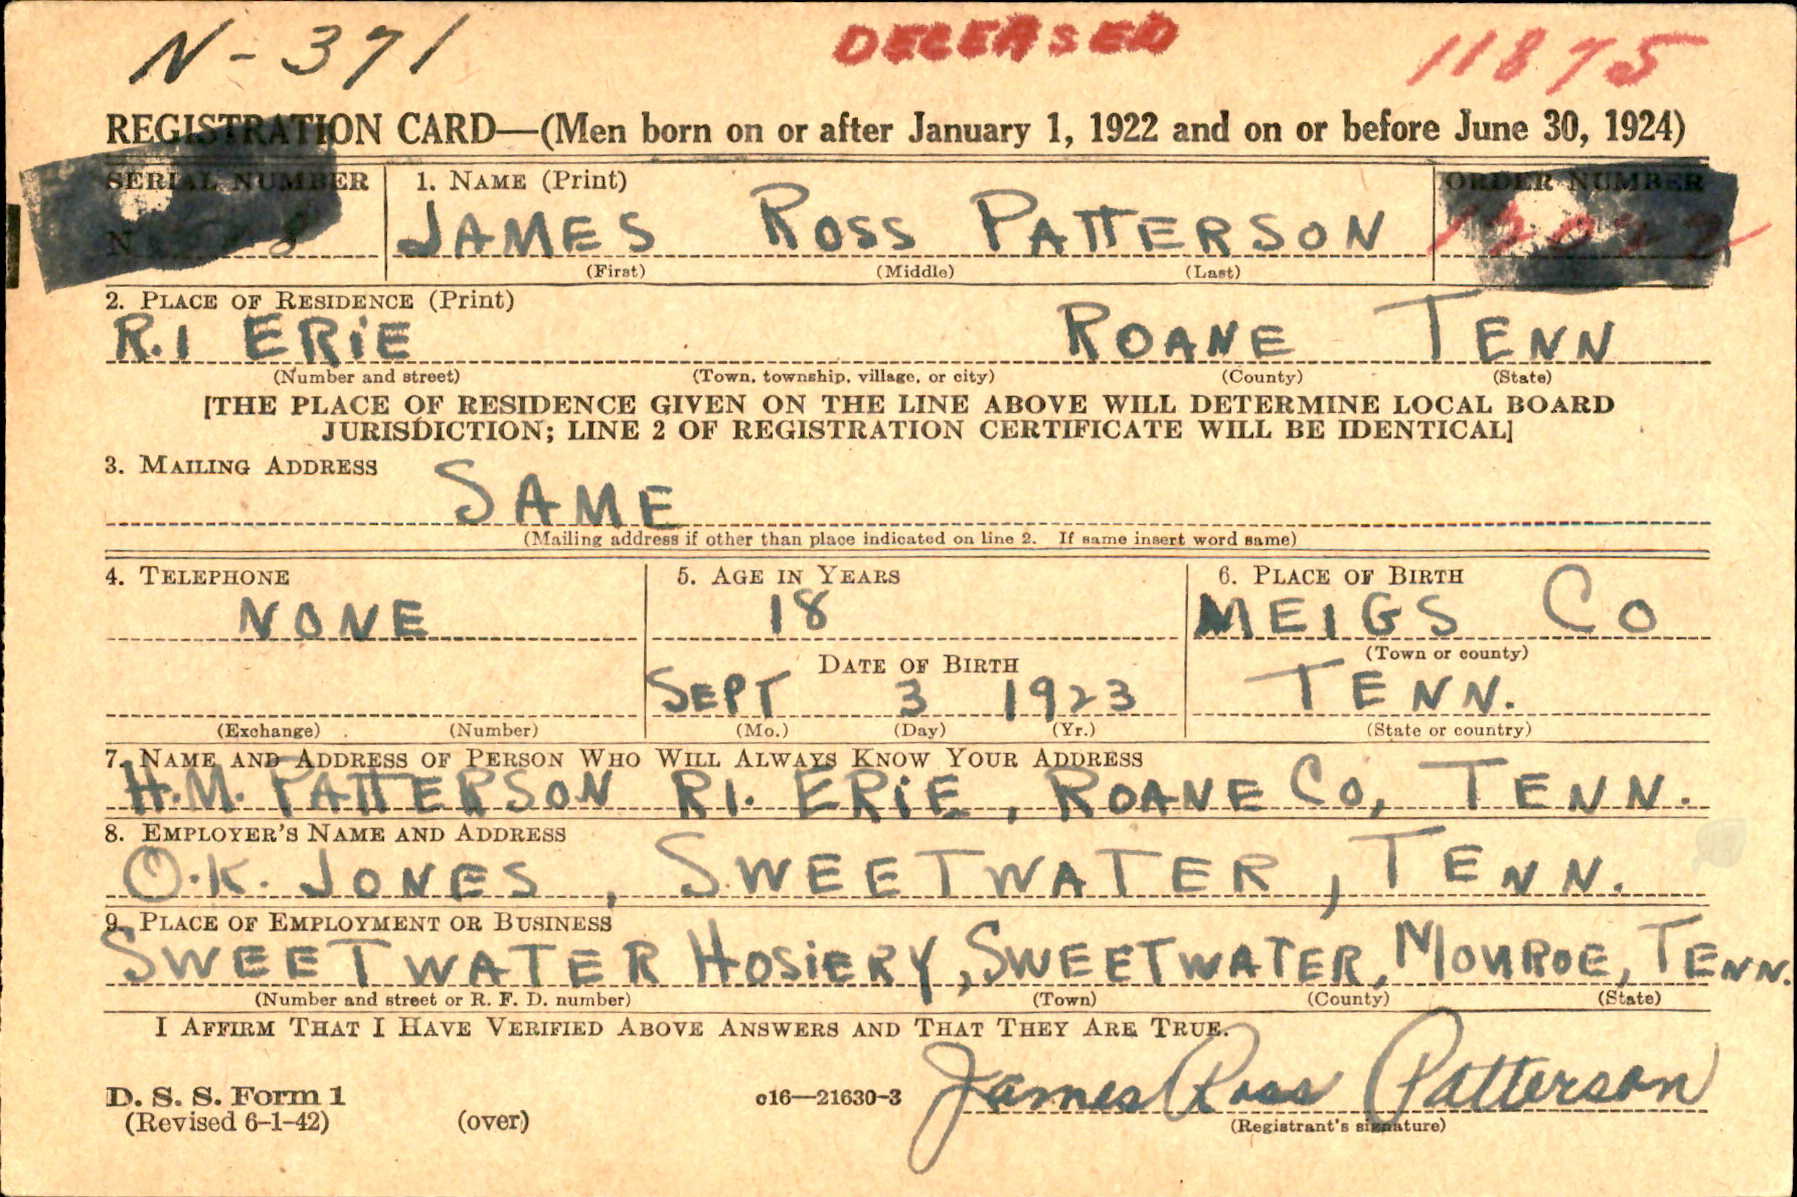 N-371 DECEASED 11875
REGISTRATION CARD—(Men born on or after January 1, 1922 and on or before June 30, 1924)
SERIAL NUMBER 1. NAME (Print) ORDER NUMBER
N 8 JAMES ROSS PATTERSON
(First) (Middle) (Last)
2. PLACE OF RESIDENCE (Print)
R.1 ERiE ROANE TENN
(Number and street) (Town, township, village, or city) (County) (State)
[THE PLACE OF RESIDENCE GIVEN ON THE LINE ABOVE WILL DETERMINE LOCAL BOARD
JURISDICTION; LINE 2 OF REGISTRATION CERTIFICATE WILL BE IDENTICAL]
3. MAILING ADDRESS
SAME
(Mailing address if other than place indicated on line 2. If same insert word same)
4. TELEPHONE 5. AGE IN YEARS 6. PLACE OF BIRTH
NONE 18 MEIGS CO
DATE OF BIRTH (Town or county)
SEPT 3 1923 TENN.
(Exchange) (Number) (Mo.) (Day) (Yr.) (State or country)
7. NAME AND ADDRESS OF PERSON WHO WILL ALWAYS KNOW YOUR ADDRESS
H.M. PATTERSON R1. ERiE, ROANE CO, TENN.
8. EMPLOYER'S NAME AND ADDRESS
O.K. JONES, SWEETWATER, TENN.
9. PLACE OF EMPLOYMENT OR BUSINESS
SWEETWATER HOSiERY, SWEETWATER, MONROE, TENN.
(Number and street or R. F. D. number) (Town) (County) (State)
I AFFIRM THAT I HAVE VERIFIED ABOVE ANSWERS AND THAT THEY ARE TRUE.
D. S. S. Form 1 c16—21630-3 James Ross Patterson
(Revised 6-1-42) (over) (Registrant's signature)